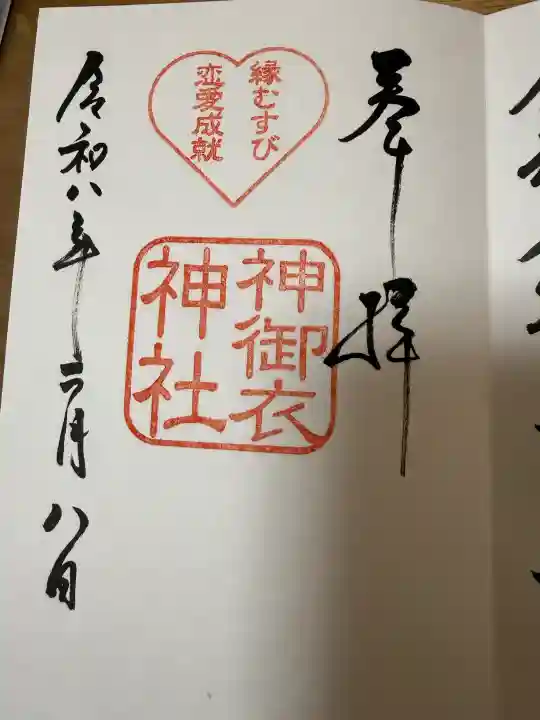 奉拝
縁むすび
恋愛成就
神御衣
神社
令和八年二月八日